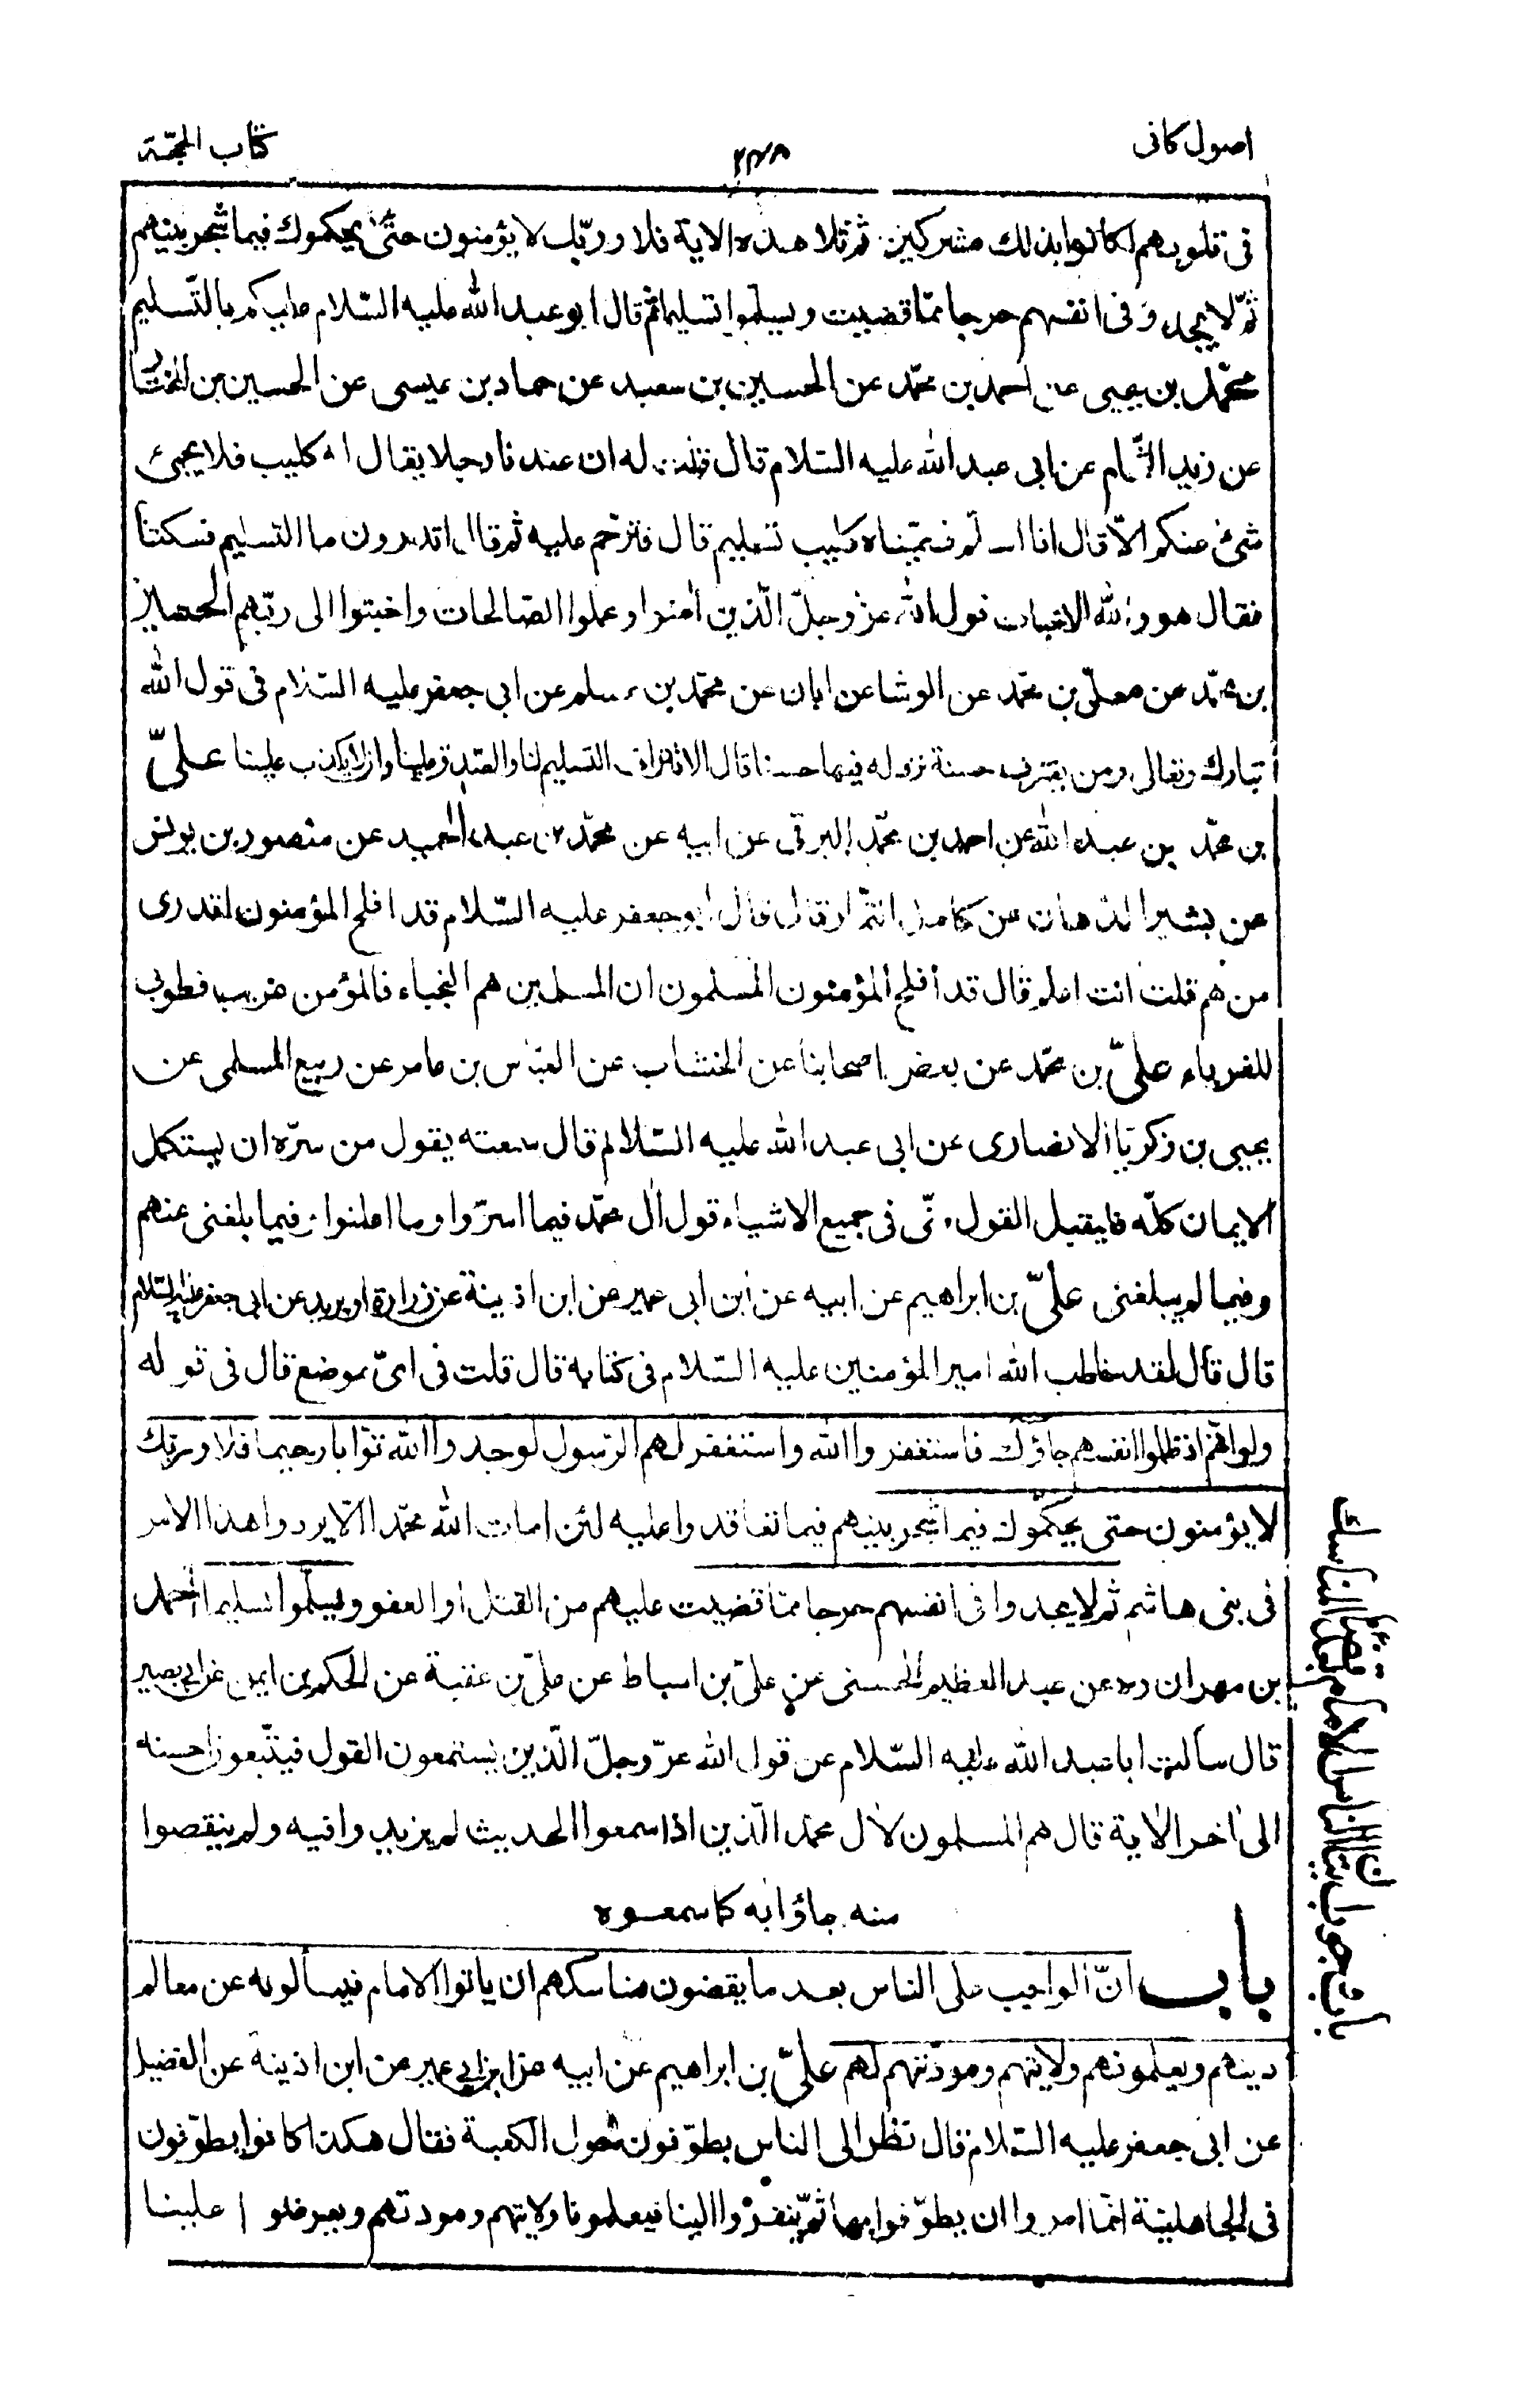 اصول كافى
٢٣٨
كتاب الحجّة
فى قلوبهم لكانوا بذلك مشركين ثم تلا هذه الاية فلا وربّك لا يؤمنون حتىّ يحكموك فيما شجر بينهم
ثمّ لا يجدوا فى انفسهم حرجا ممّا قضيت ويسلّموا تسليما ثم قال ابو عبد الله عليه السّلام عليكم بالتّسليم
محمّد بن يحيى عن احمد بن محمّد عن الحسين بن سعيد عن حماد بن عيسى عن الحسين بن المختار
عن زيد الشّحام عن ابى عبد الله عليه السّلام قال قلت له ان عندنا رجلا يقال له كليب فلا يجئ
شئ عنكم الاّ قال انا اسلّم فسمّيناه كليب تسليم قال فترحّم عليه ثم قال اتدرون ما التسليم فسكتنا
فقال هو والله الاخبات قول الله عزّ وجلّ الّذين اٰمنوا وعملوا الصّالحات واخبتوا الى ربّهم الحسين
بن محمّد عن معلّى بن محمّد عن الوشا عن ابان عن محمّد بن مسلم عن ابى جعفر عليه السّلام فى قول الله
تبارك وتعالى ومن يقترف حسنة نزد له فيها حسنا قال الاقتراف التسليم لنا والصّدق علينا وان لا يكذب علينا علىّ
بن محمّد بن عبد الله عن احمد بن محمّد البرقى عن ابيه عن محمّد بن عبد الحميد عن منصور بن يونس
عن بشير الدّهان عن كامل التّمار قال قال ابو جعفر عليه السّلام قد افلح المؤمنون اتدرى
من هم قلت انت اعلم قال قد أفلح المؤمنون المسلمون ان المسلمين هم النجباء فالمؤمن غريب فطوبى
للغرباء علىّ بن محمّد عن بعض اصحابنا عن الخشاب عن العبّاس بن عامر عن ربيع المسلى عن
يحيى بن زكريّا الانصارى عن ابى عبد الله عليه السّلام قال سمعته يقول من سرّه ان يستكمل
الايمان كلّه فليقبل القول منّى فى جميع الاشياء قول اٰل محمّد فيما اسرّوا وما اعلنوا وفيما بلغنى عنهم
وفيما لم يبلغنى علىّ بن ابراهيم عن ابيه عن ابن ابى عمير عن ابن اذينة عن زرارة او بريد عن ابى جعفر عليه السّلام
قال قال لقد خاطب الله امير المؤمنين عليه السّلام فى كتابه قال قلت فى اىّ موضع قال فى قوله
ولو انّهم اذ ظلموا انفسهم جاؤك فاستغفروا الله واستغفر لهم الرّسول لوجدوا الله توّابا رحيما فلا وربّك
لا يؤمنون حتى يحكّموك فيما شجر بينهم فيما تعاقدوا عليه لئن امات الله محمّدا الاّ يردوا هذا الامر
فى بنى هاشم ثم لا يجدوا فى انفسهم حرجا ممّا قضيت عليهم من القتل او العفو ويسلّموا تسليما احمد
بن مهران ره عن عبد العظيم الحسنى عن علىّ بن اسباط عن علىّ بن عقبة عن الحكم بن ايمن عن ابى بصير
قال سألت ابا عبد الله عليه السّلام عن قول الله عزّ وجلّ الّذين يستمعون القول فيتّبعون احسنه
الى اٰخر الاٰية قال هم المسلمون لاٰل محمّد الّذين اذا سمعوا الحديث لم يزيدوا فيه ولم ينقصوا
منه جاؤا به كما سمعوه
باب انّ الواجب على الناس بعد ما يقضون مناسكهم ان ياتوا الامام فيسألونه عن معالم
دينهم ويعلمونهم ولايتهم ومودّتهم لهم علىّ بن ابراهيم عن ابيه عن ابن ابى عمير عن ابن اذينة عن الفضيل
عن ابى جعفر عليه السّلام قال نظر الى الناس يطوّفون حول الكعبة فقال هكذا كانوا يطوّفون
فى الجاهلية انّما امروا ان يطوّفوا بها ثمّ ينفروا الينا فيعلمونا ولايتهم ومودتهم ويعرضوا علينا